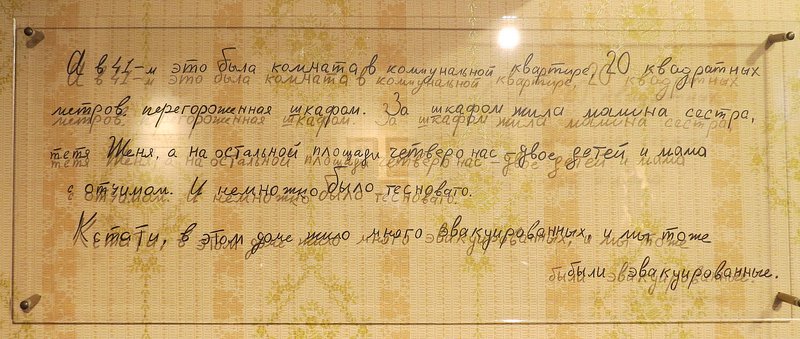 А в 41-м это была комната в коммунальной квартире, 20 квадратных
метров, перегороженная шкафом. За шкафом жила мамина сестра,
тетя Женя, а на остальной площади четверо нас – двое детей и мама
с отчимом. И немножко было тесновато.
Кстати, в этом доме жило много эвакуированных, и мы тоже
были эвакуированные.